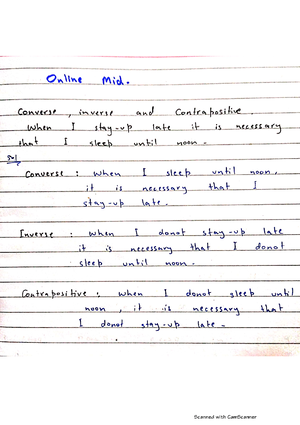 Online Mid.
Converse, inverse and Contrapositive.
When I stay-up late it is necessary
that I sleep until noon.
Converse : When I sleep until noon,
it is necessary that I
stay-up late.
Inverse : when I donot stay-up late
it is necessary that I donot
sleep until noon.
Contrapositive : when I donot sleep until
noon, it is necessary that
I donot stay-up late.
Scanned with CamScanner